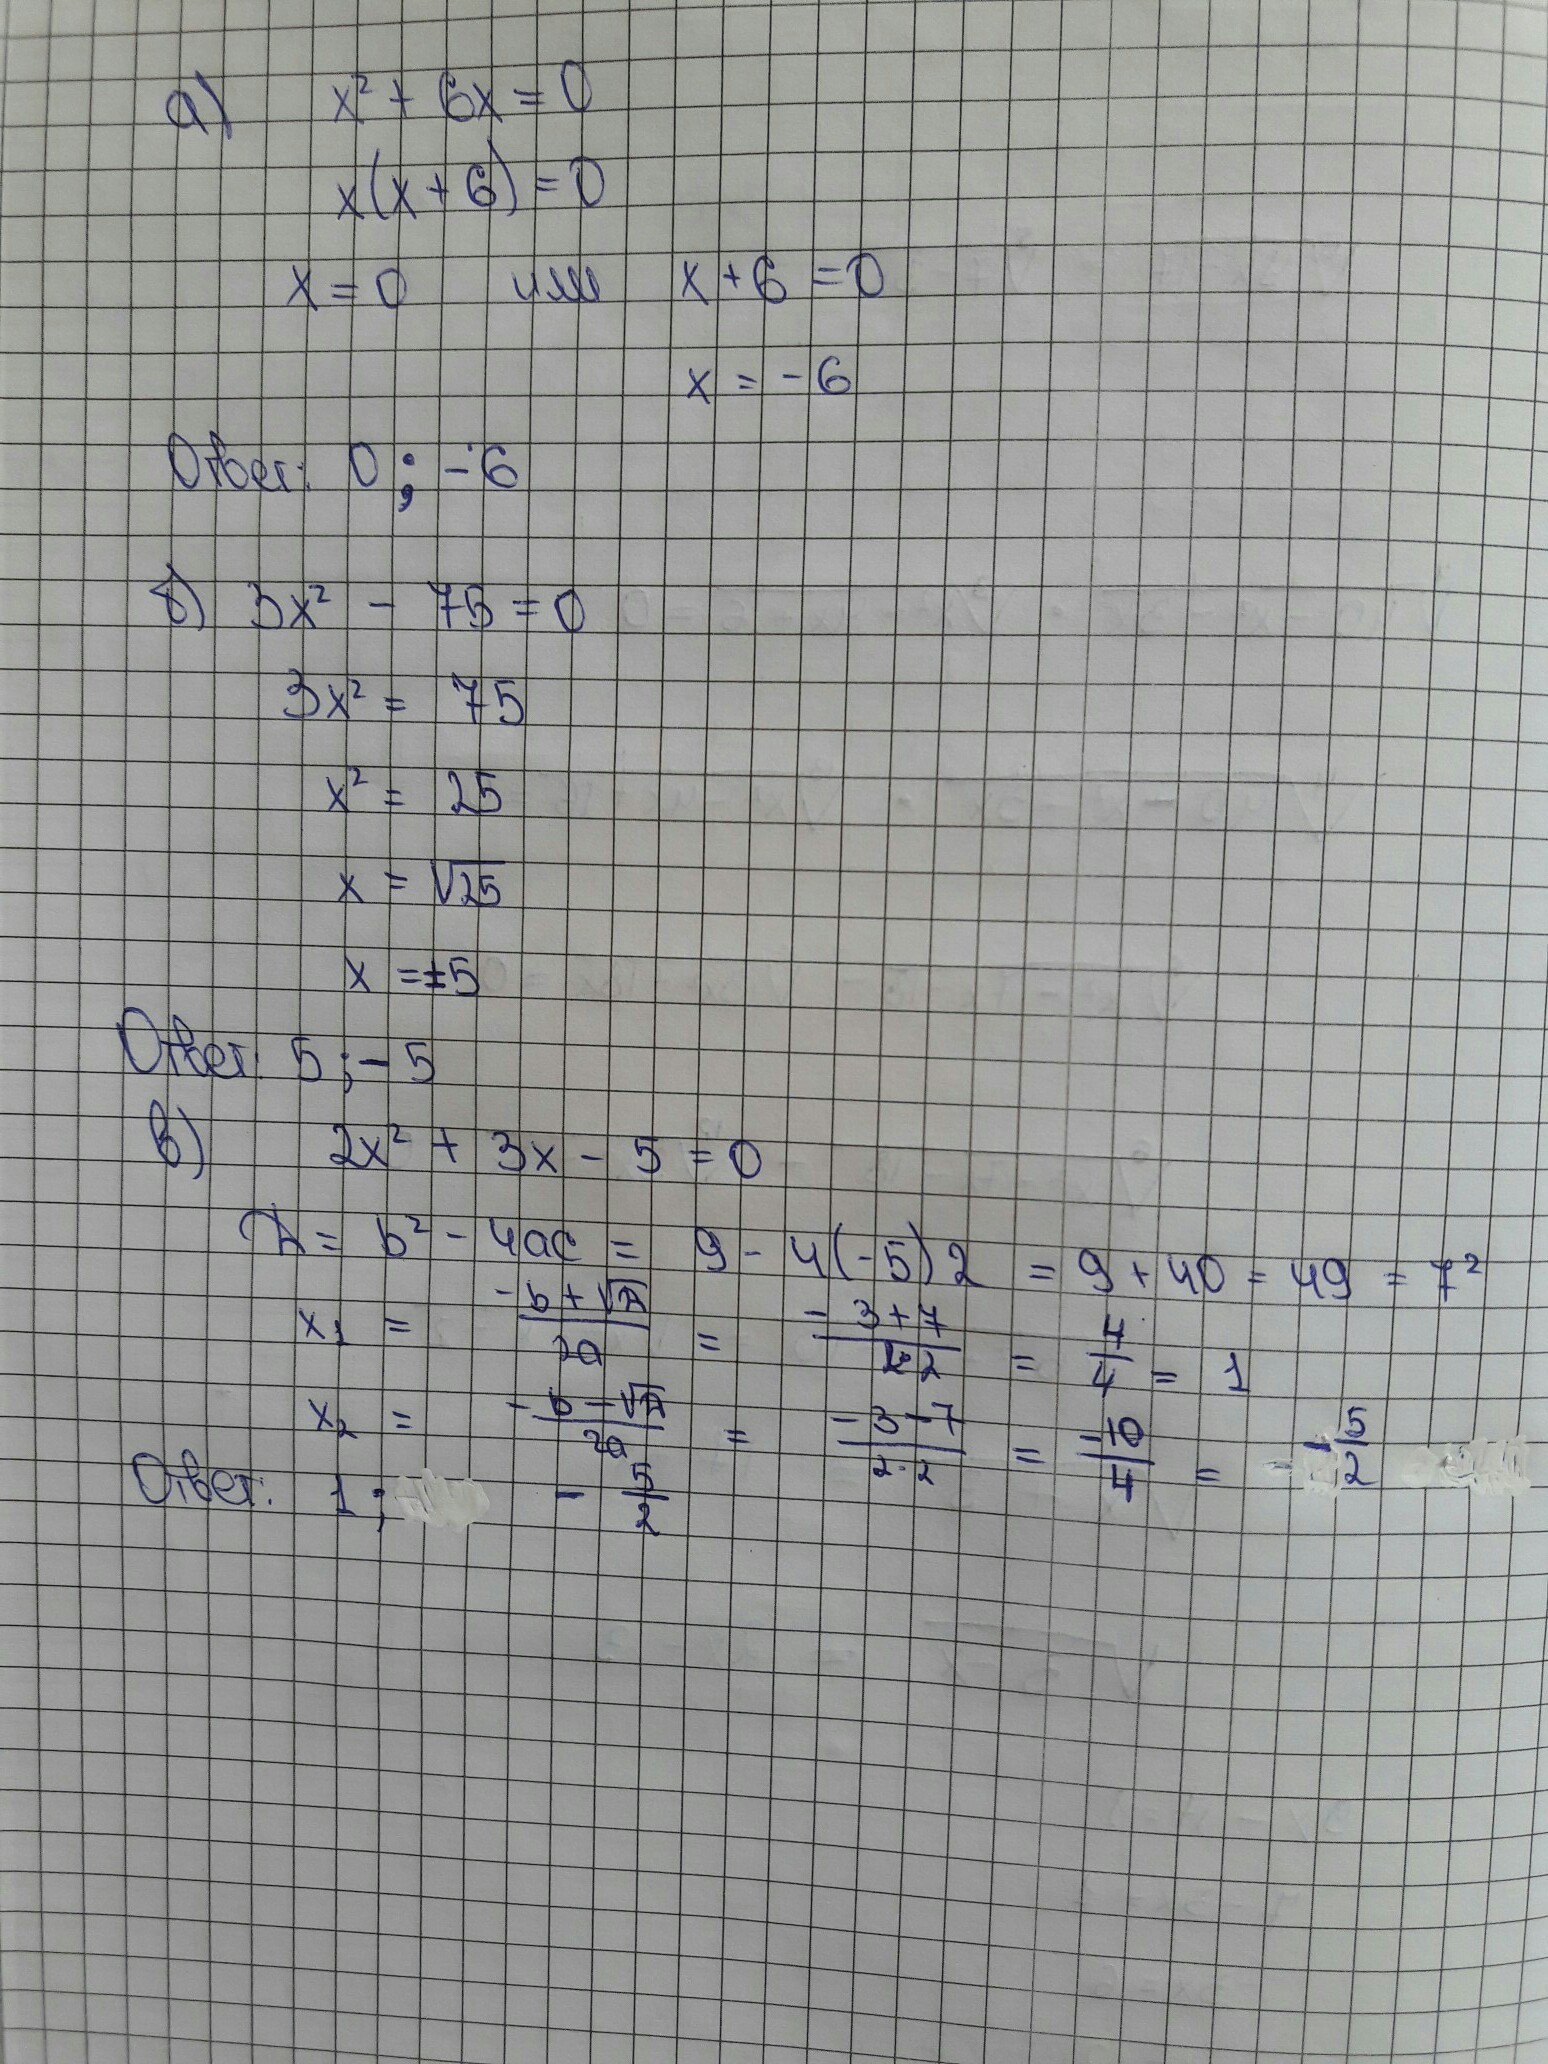 а) x² + 6x = 0
x(x + 6) = 0
x = 0 или x + 6 = 0
x = -6
Ответ: 0 ; -6
б) 3x² - 75 = 0
3x² = 75
x² = 25
x = √25
x = ±5
Ответ: 5 ; - 5
в) 2x² + 3x - 5 = 0
D = b² - 4ac = 9 - 4(-5)2 = 9 + 40 = 49 = 7²
x₁ = (-b + √D)/(2a) = (-3 + 7)/(2·2) = 4/4 = 1
x₂ = (-b - √D)/(2a) = (-3 - 7)/(2·2) = -10/4 = -5/2
Ответ: 1 ; - 5/2